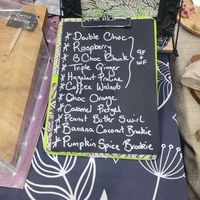 * Double Choc
* Raspberry
* 3 Choc Chunk
* Triple Ginger
* Hazelnut Praline
* Coffee Walnut
GF
WF
* Choc Orange
* Caramel Pretzel
* Peanut Butter Swirl
* Banana Coconut Brookie
* Pumpkin Spice Brookie